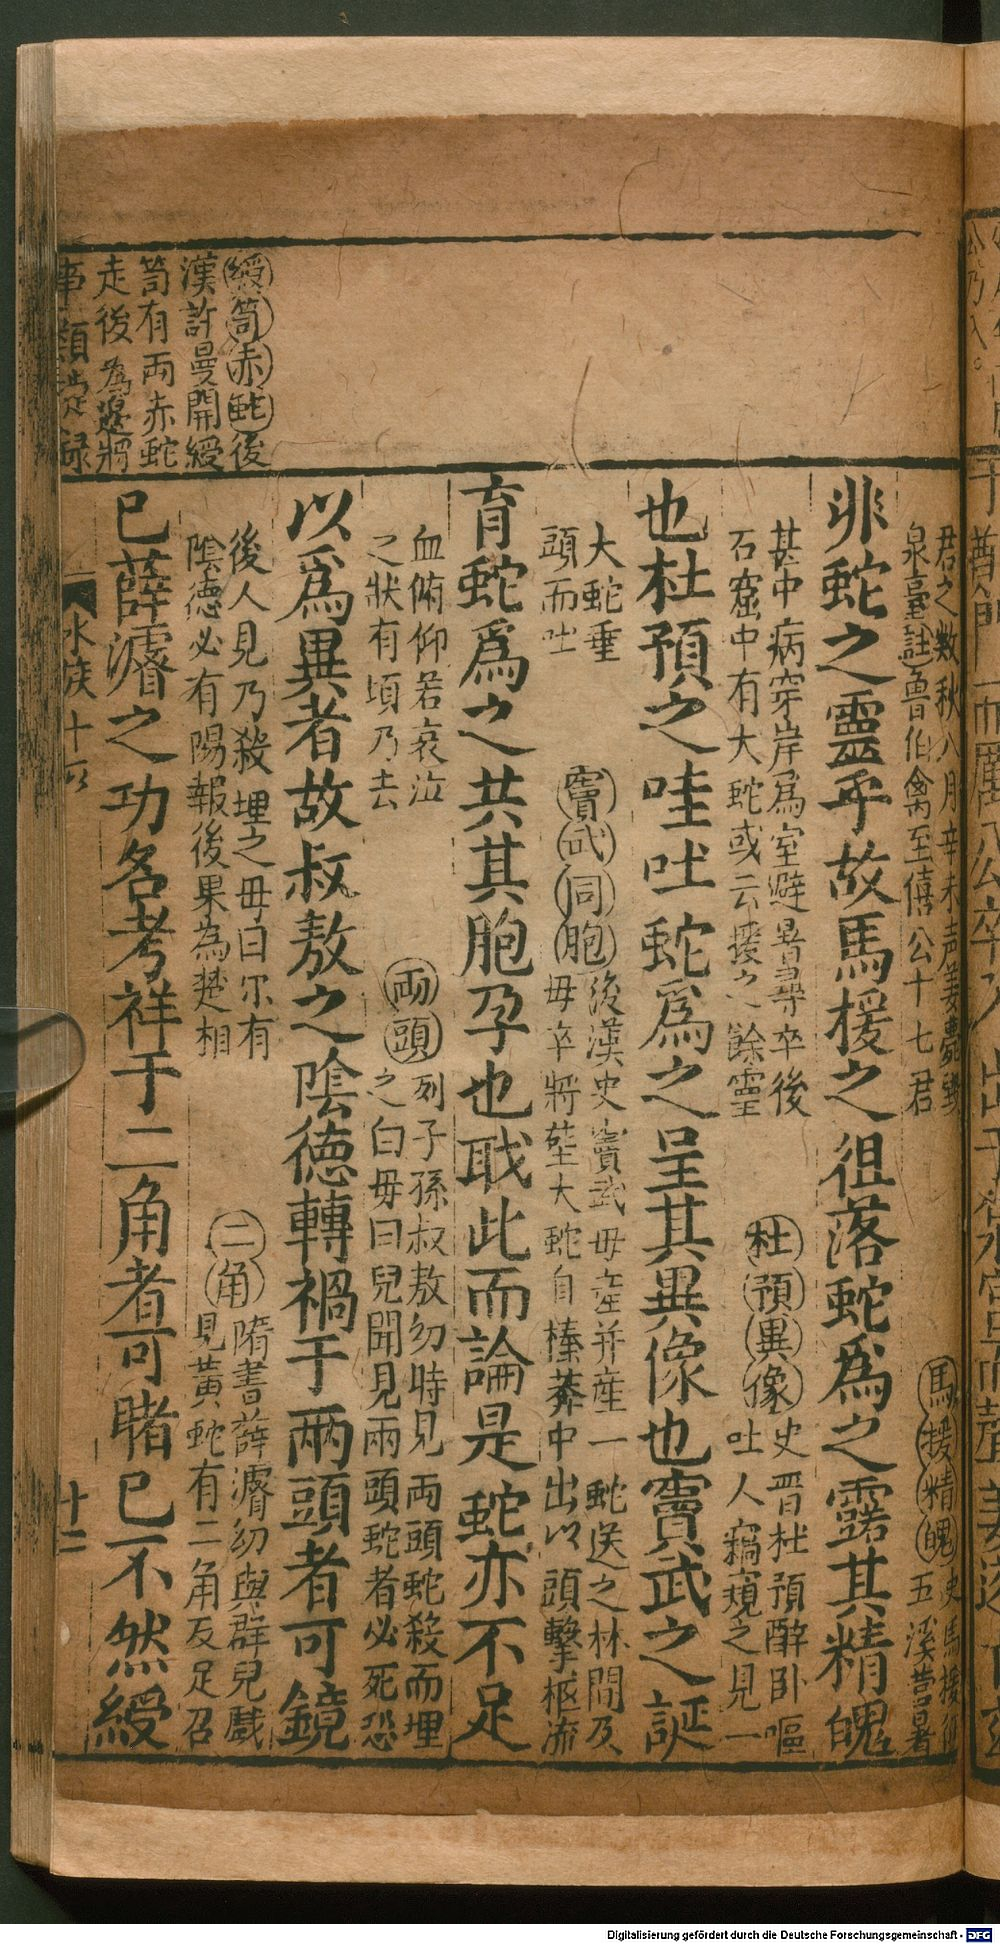 綬笥赤蛇後
漢許曼開綬
笥有両赤蛇
走後為邉將
事類
君之數秋八月辛未声姜薨毀
泉臺註魯伯禽至僖公十七君
非蛇之靈乎故馬援之徂落蛇爲之露其精魄
馬援精魄史馬援征
五溪營暑
甚中病穿岸爲室避暑尋卒後
石窟中有大蛇或云援之餘靈
也杜預之哇吐蛇爲之呈其異像也竇武之誕
杜預異像史晋杜預醉卧嘔
吐人竊窺之見一
大蛇垂
頭而吐
竇武同胞後漢史竇武毋産并産一蛇送之林間及
毋卒將塟大蛇自榛莽中出以頭擊柩流
育蛇爲之共其胞孕也戢此而論是蛇亦不足
血俯仰若哀泣
之狀有頃乃去
両頭列子孫叔敖幼時見両頭蛇殺而埋
之白毋曰兒聞見兩頭蛇者必死恐
以爲異者故叔敖之陰德轉禍于兩頭者可鏡
後人見乃殺埋之毋曰尔有
陰德必有陽報後果為楚相
二角隋書薛濬幼與群兒戲
見黃蛇有二角及足召
已薛濬之功名考祥于二角者可睹已不然綬
水族十六
十二
Digitalisierung gefördert durch die Deutsche Forschungsgemeinschaft - DFG